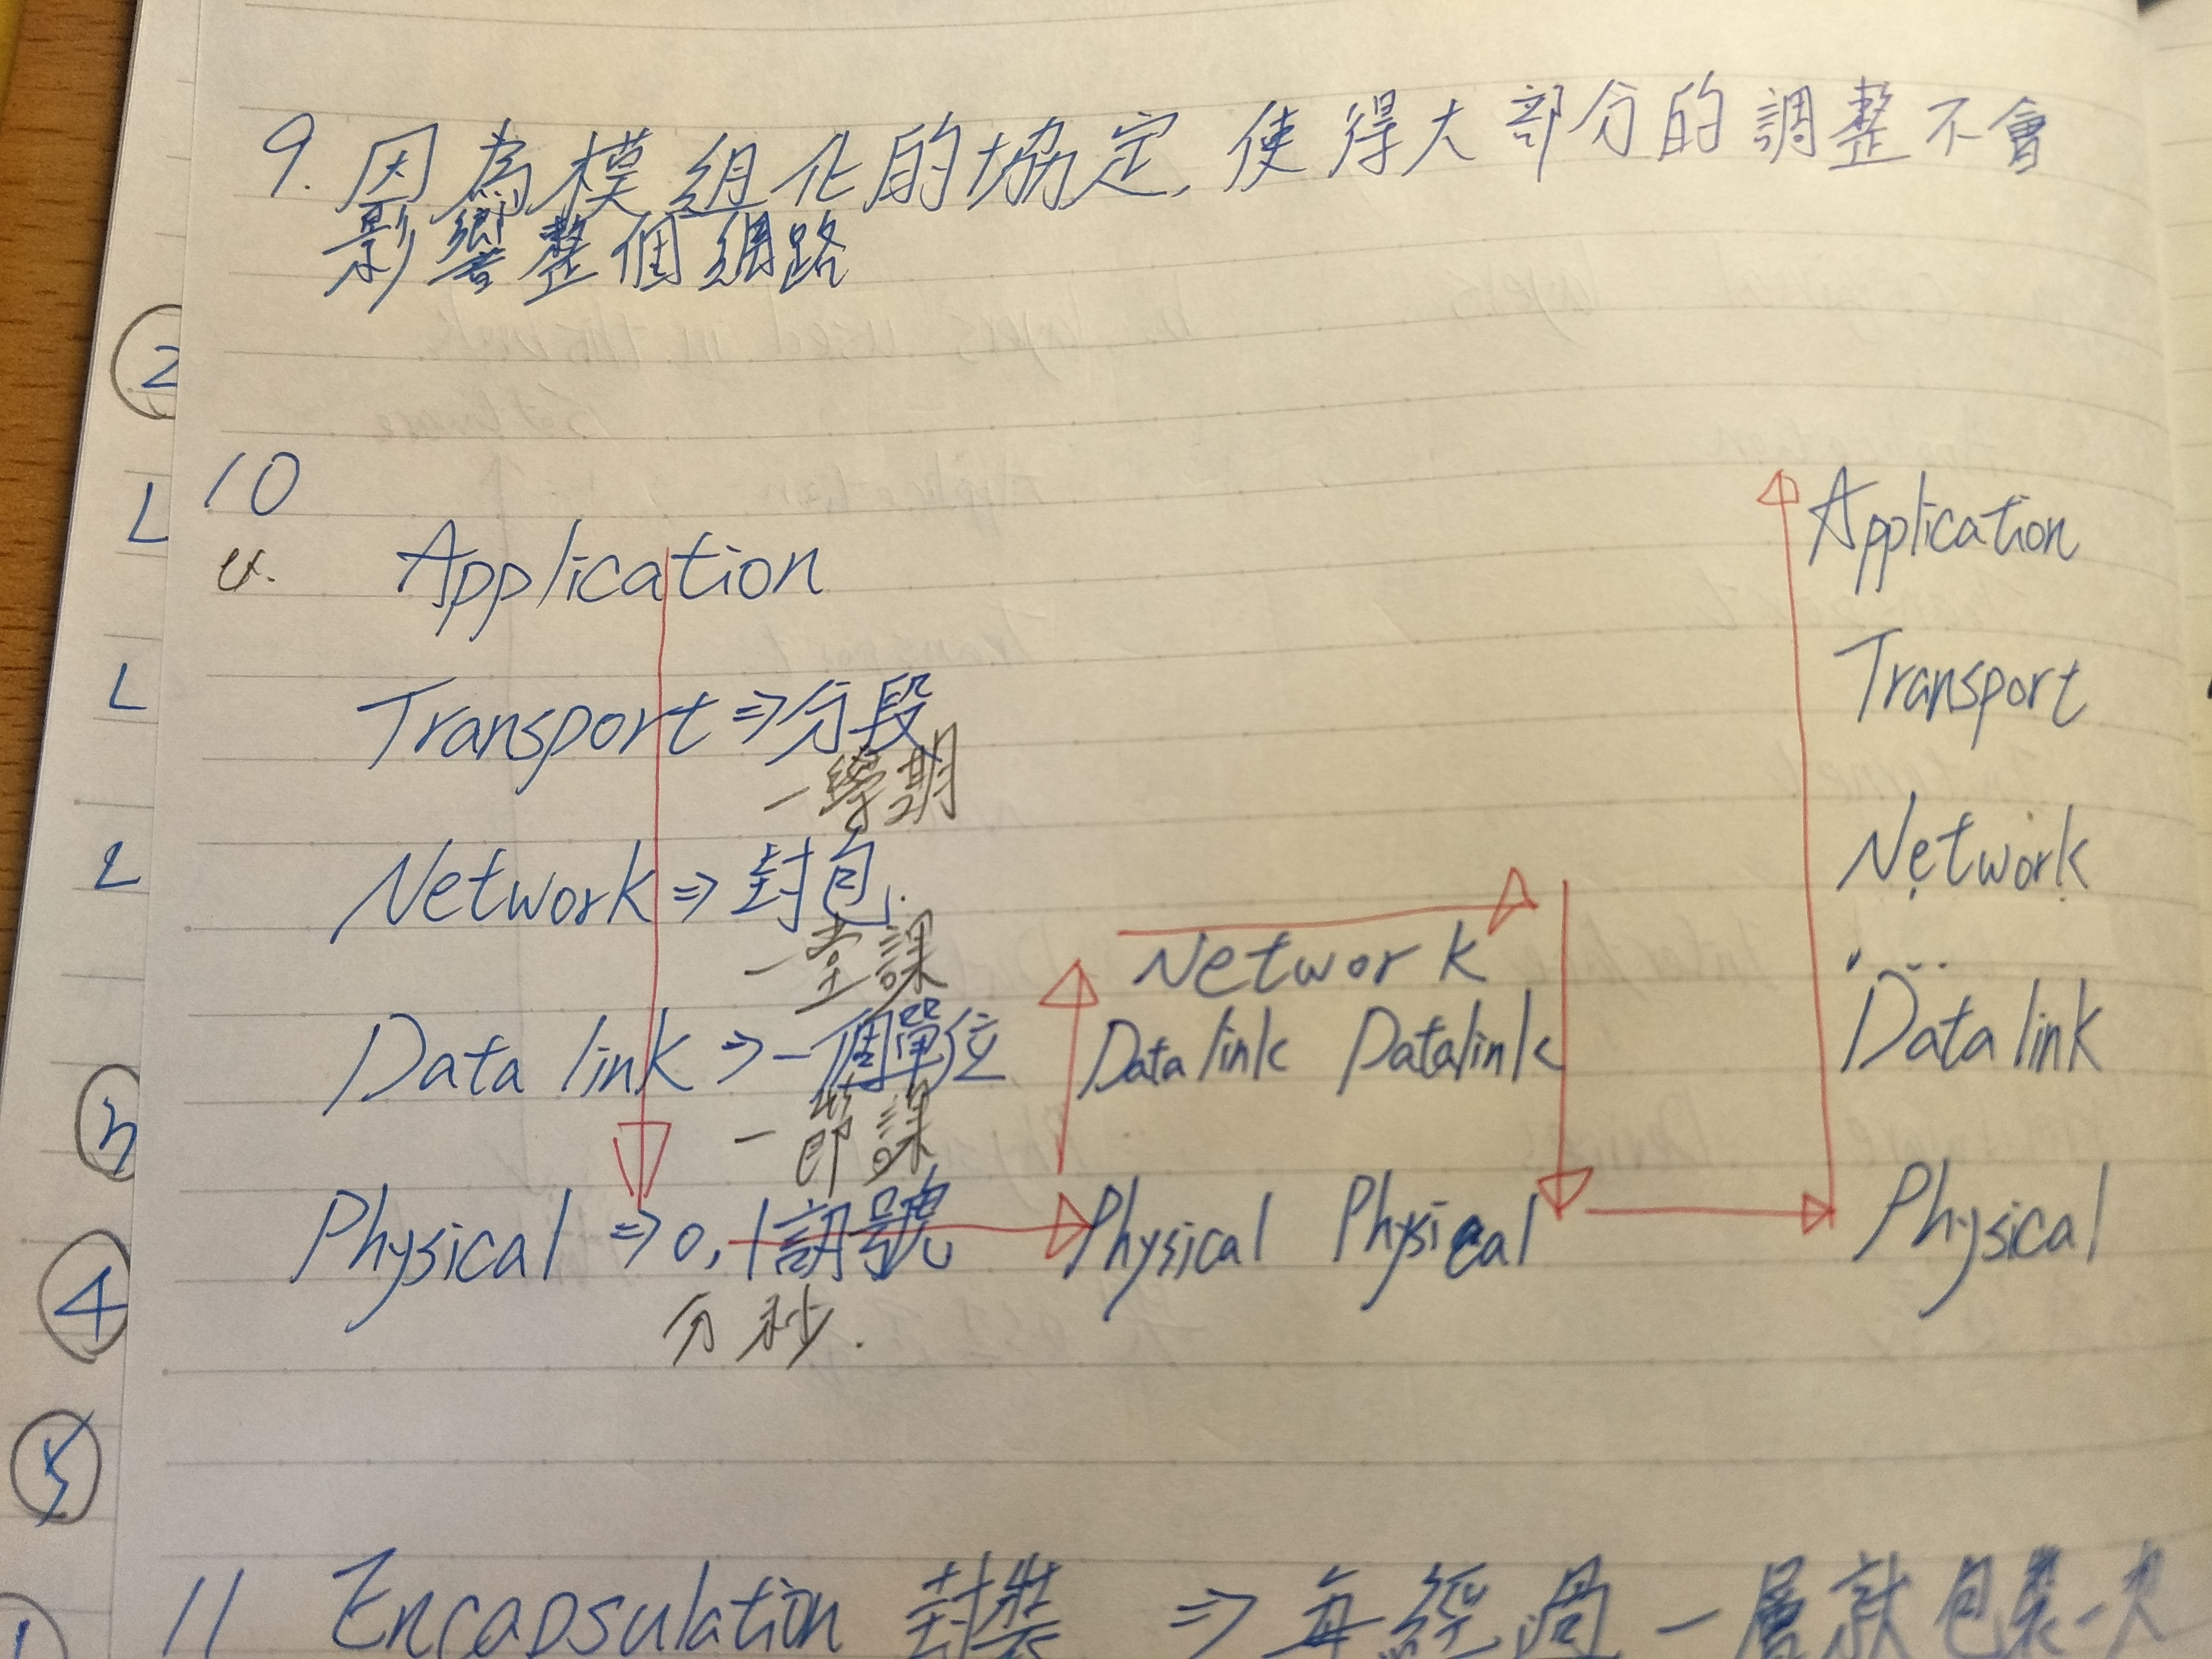 9. 因為模組化的協定, 使得大部分的調整不會
影響整個網路
10
ex.
Application
Transport ⇒ 分段
一學期
Network ⇒ 封包.
一堂課
Data link ⇒ 一個單位
一節課
Physical ⇒ 0, 1訊號
分秒.
Network
Data link Datalink
Physical Physical
Application
Transport
Network
Data link
Physical
11 Encapsulation 封裝 ⇒ 每經過一層就包裝一次
2
L
L
2
3
4
5